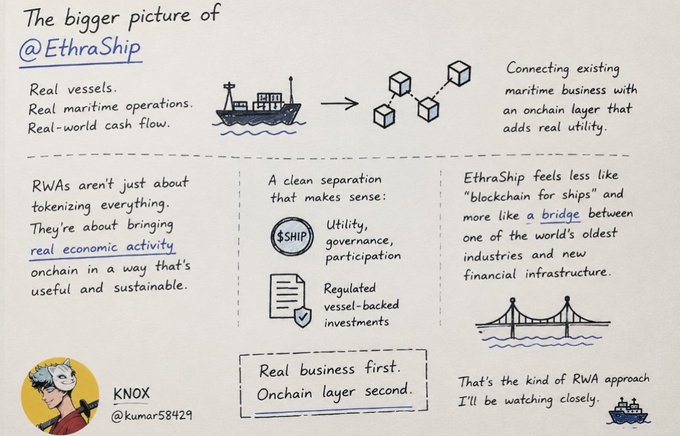 The bigger picture of
@EthraShip
Real vessels.
Real maritime operations.
Real-world cash flow.
Connecting existing
maritime business with
an onchain layer that
adds real utility.
RWAs aren't just about
tokenizing everything.
They're about bringing
real economic activity
onchain in a way that's
useful and sustainable.
A clean separation
that makes sense:
$SHIP
Utility,
governance,
participation
Regulated
vessel-backed
investments
EthraShip feels less like
"blockchain for ships" and
more like a bridge between
one of the world's oldest
industries and new
financial infrastructure.
Real business first.
Onchain layer second.
That's the kind of RWA approach
I'll be watching closely.
KNOX
@kumar58429